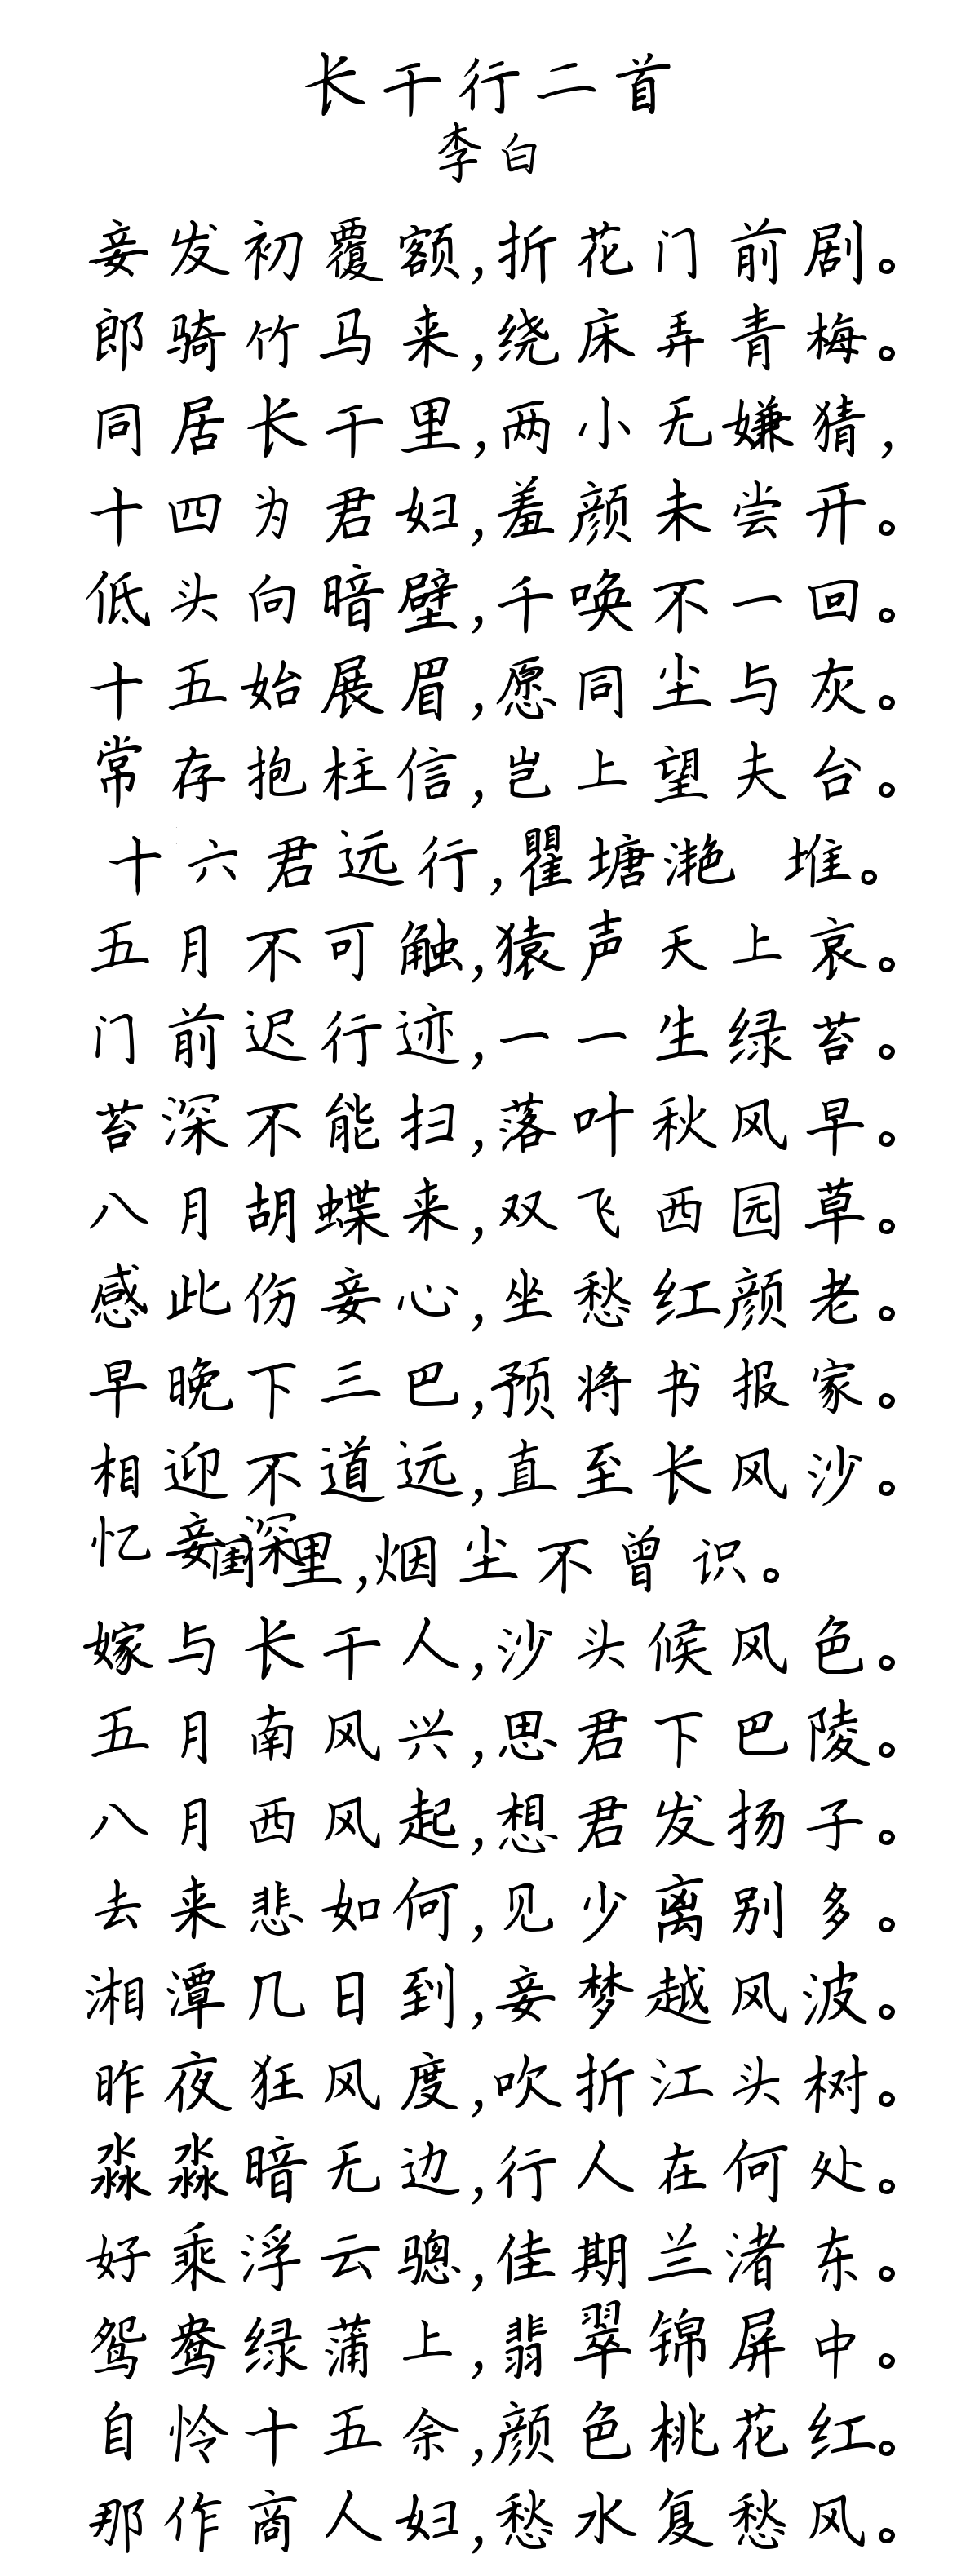 长干行二首
李白
妾发初覆额,折花门前剧。
郎骑竹马来,绕床弄青梅。
同居长干里,两小无嫌猜,
十四为君妇,羞颜未尝开。
低头向暗壁,千唤不一回。
十五始展眉,愿同尘与灰。
常存抱柱信,岂上望夫台。
十六君远行,瞿塘滟 堆。
五月不可触,猿声天上哀。
门前迟行迹,一一生绿苔。
苔深不能扫,落叶秋风早。
八月胡蝶来,双飞西园草。
感此伤妾心,坐愁红颜老。
早晚下三巴,预将书报家。
相迎不道远,直至长风沙。
忆妾深闺里,烟尘不曾识。
嫁与长干人,沙头候风色。
五月南风兴,思君下巴陵。
八月西风起,想君发扬子。
去来悲如何,见少离别多。
湘潭几日到,妾梦越风波。
昨夜狂风度,吹折江头树。
淼淼暗无边,行人在何处。
好乘浮云骢,佳期兰渚东。
鸳鸯绿蒲上,翡翠锦屏中。
自怜十五余,颜色桃花红。
那作商人妇,愁水复愁风。